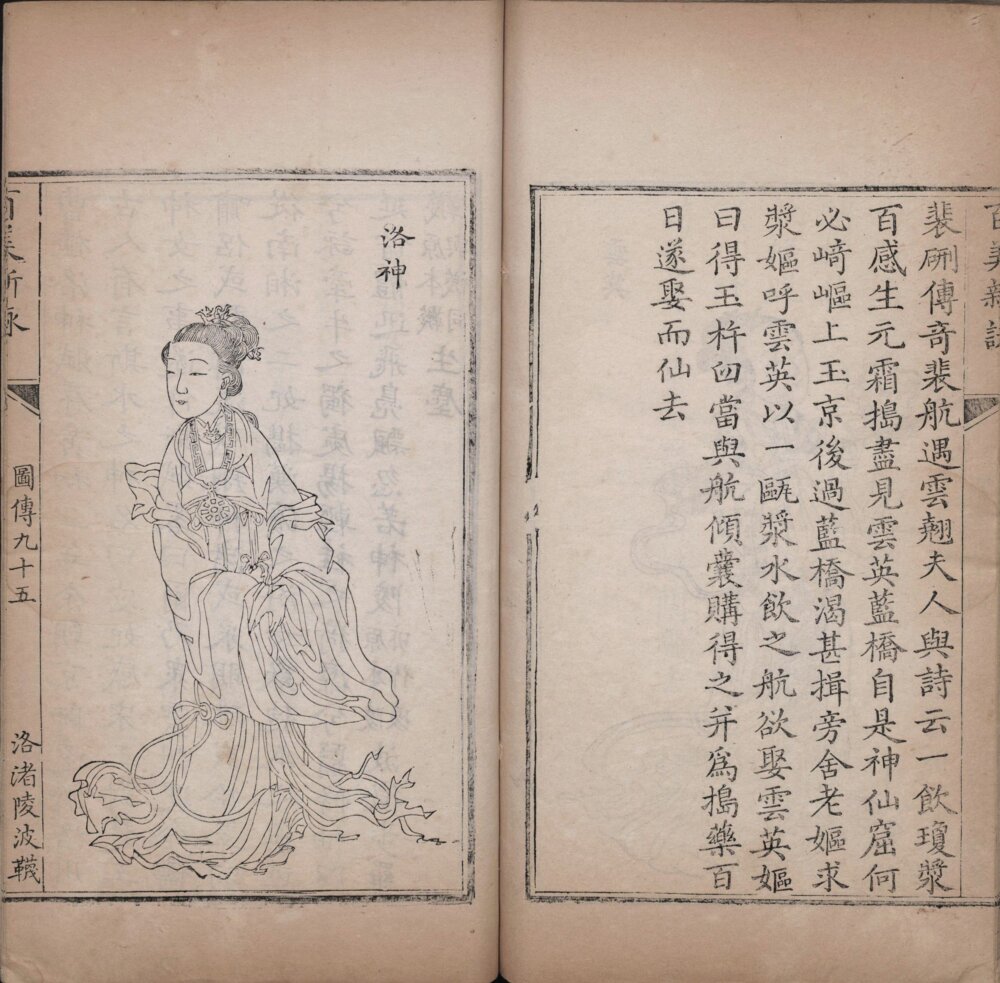 百美新詠
裴硎傳奇裴航遇雲翹夫人與詩云一飲瓊漿
百感生元霜搗盡見雲英藍橋自是神仙窟何
必﨑嶇上玉京後過藍橋渴甚揖旁舍老嫗求
漿嫗呼雲英以一甌漿水飲之航欲娶雲英嫗
曰得玉杵臼當與航傾囊購得之并爲搗藥百
日遂娶而仙去
洛神
百美新詠
圖傳九十五
洛渚陵波韈